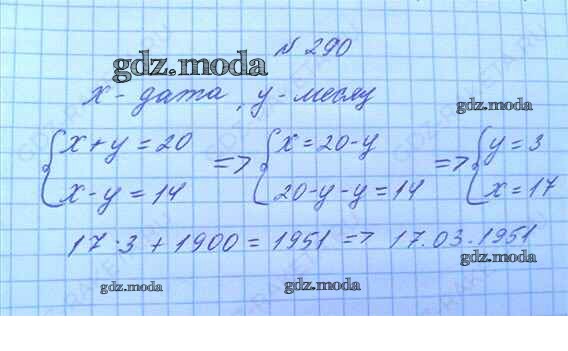 № 290
gdz.moda
x - дата, y - месяц
gdz.moda
{x + y = 20 => {x = 20 - y => {y = 3
{x - y = 14 {20 - y - y = 14 {x = 17
17 · 3 + 1900 = 1951 => 17.03.1951
gdz.moda
gdz.moda
gdz.moda